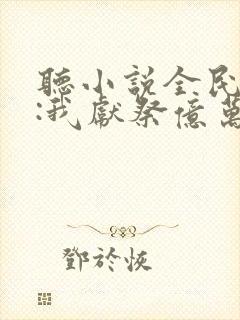 聽小説全民
:我獻祭億萬
鄧於恢